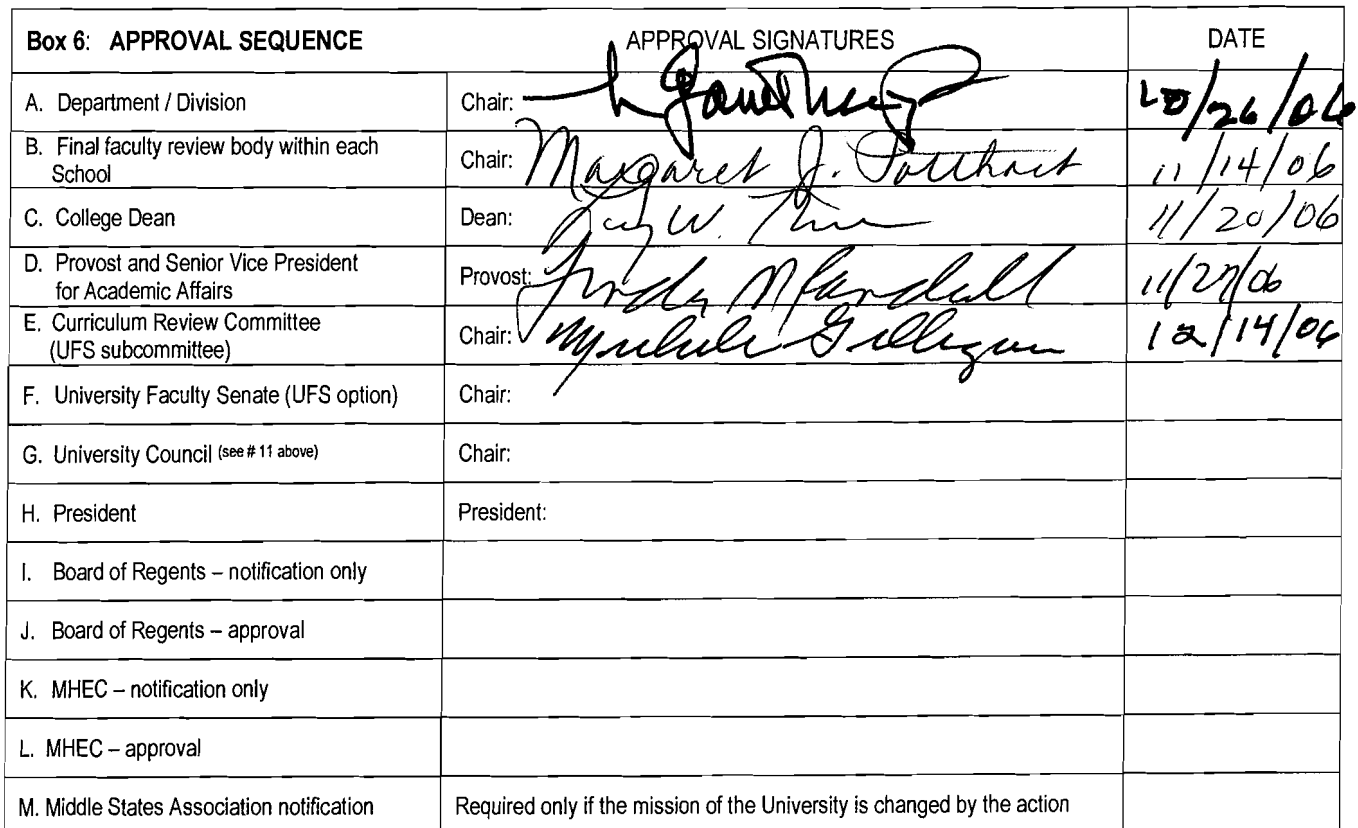 Box 6: APPROVAL SEQUENCE APPROVAL SIGNATURES DATE
A. Department / Division Chair: 10/26/06
B. Final faculty review body within each
School Chair: Margaret J. Potthast 11/14/06
C. College Dean Dean: W. 11/20/06
D. Provost and Senior Vice President
for Academic Affairs Provost: 11/27/06
E. Curriculum Review Committee
(UFS subcommittee) Chair: Gilligan 12/14/06
F. University Faculty Senate (UFS option) Chair:
G. University Council (see # 11 above) Chair:
H. President President:
I. Board of Regents – notification only
J. Board of Regents – approval
K. MHEC – notification only
L. MHEC – approval
M. Middle States Association notification Required only if the mission of the University is changed by the action